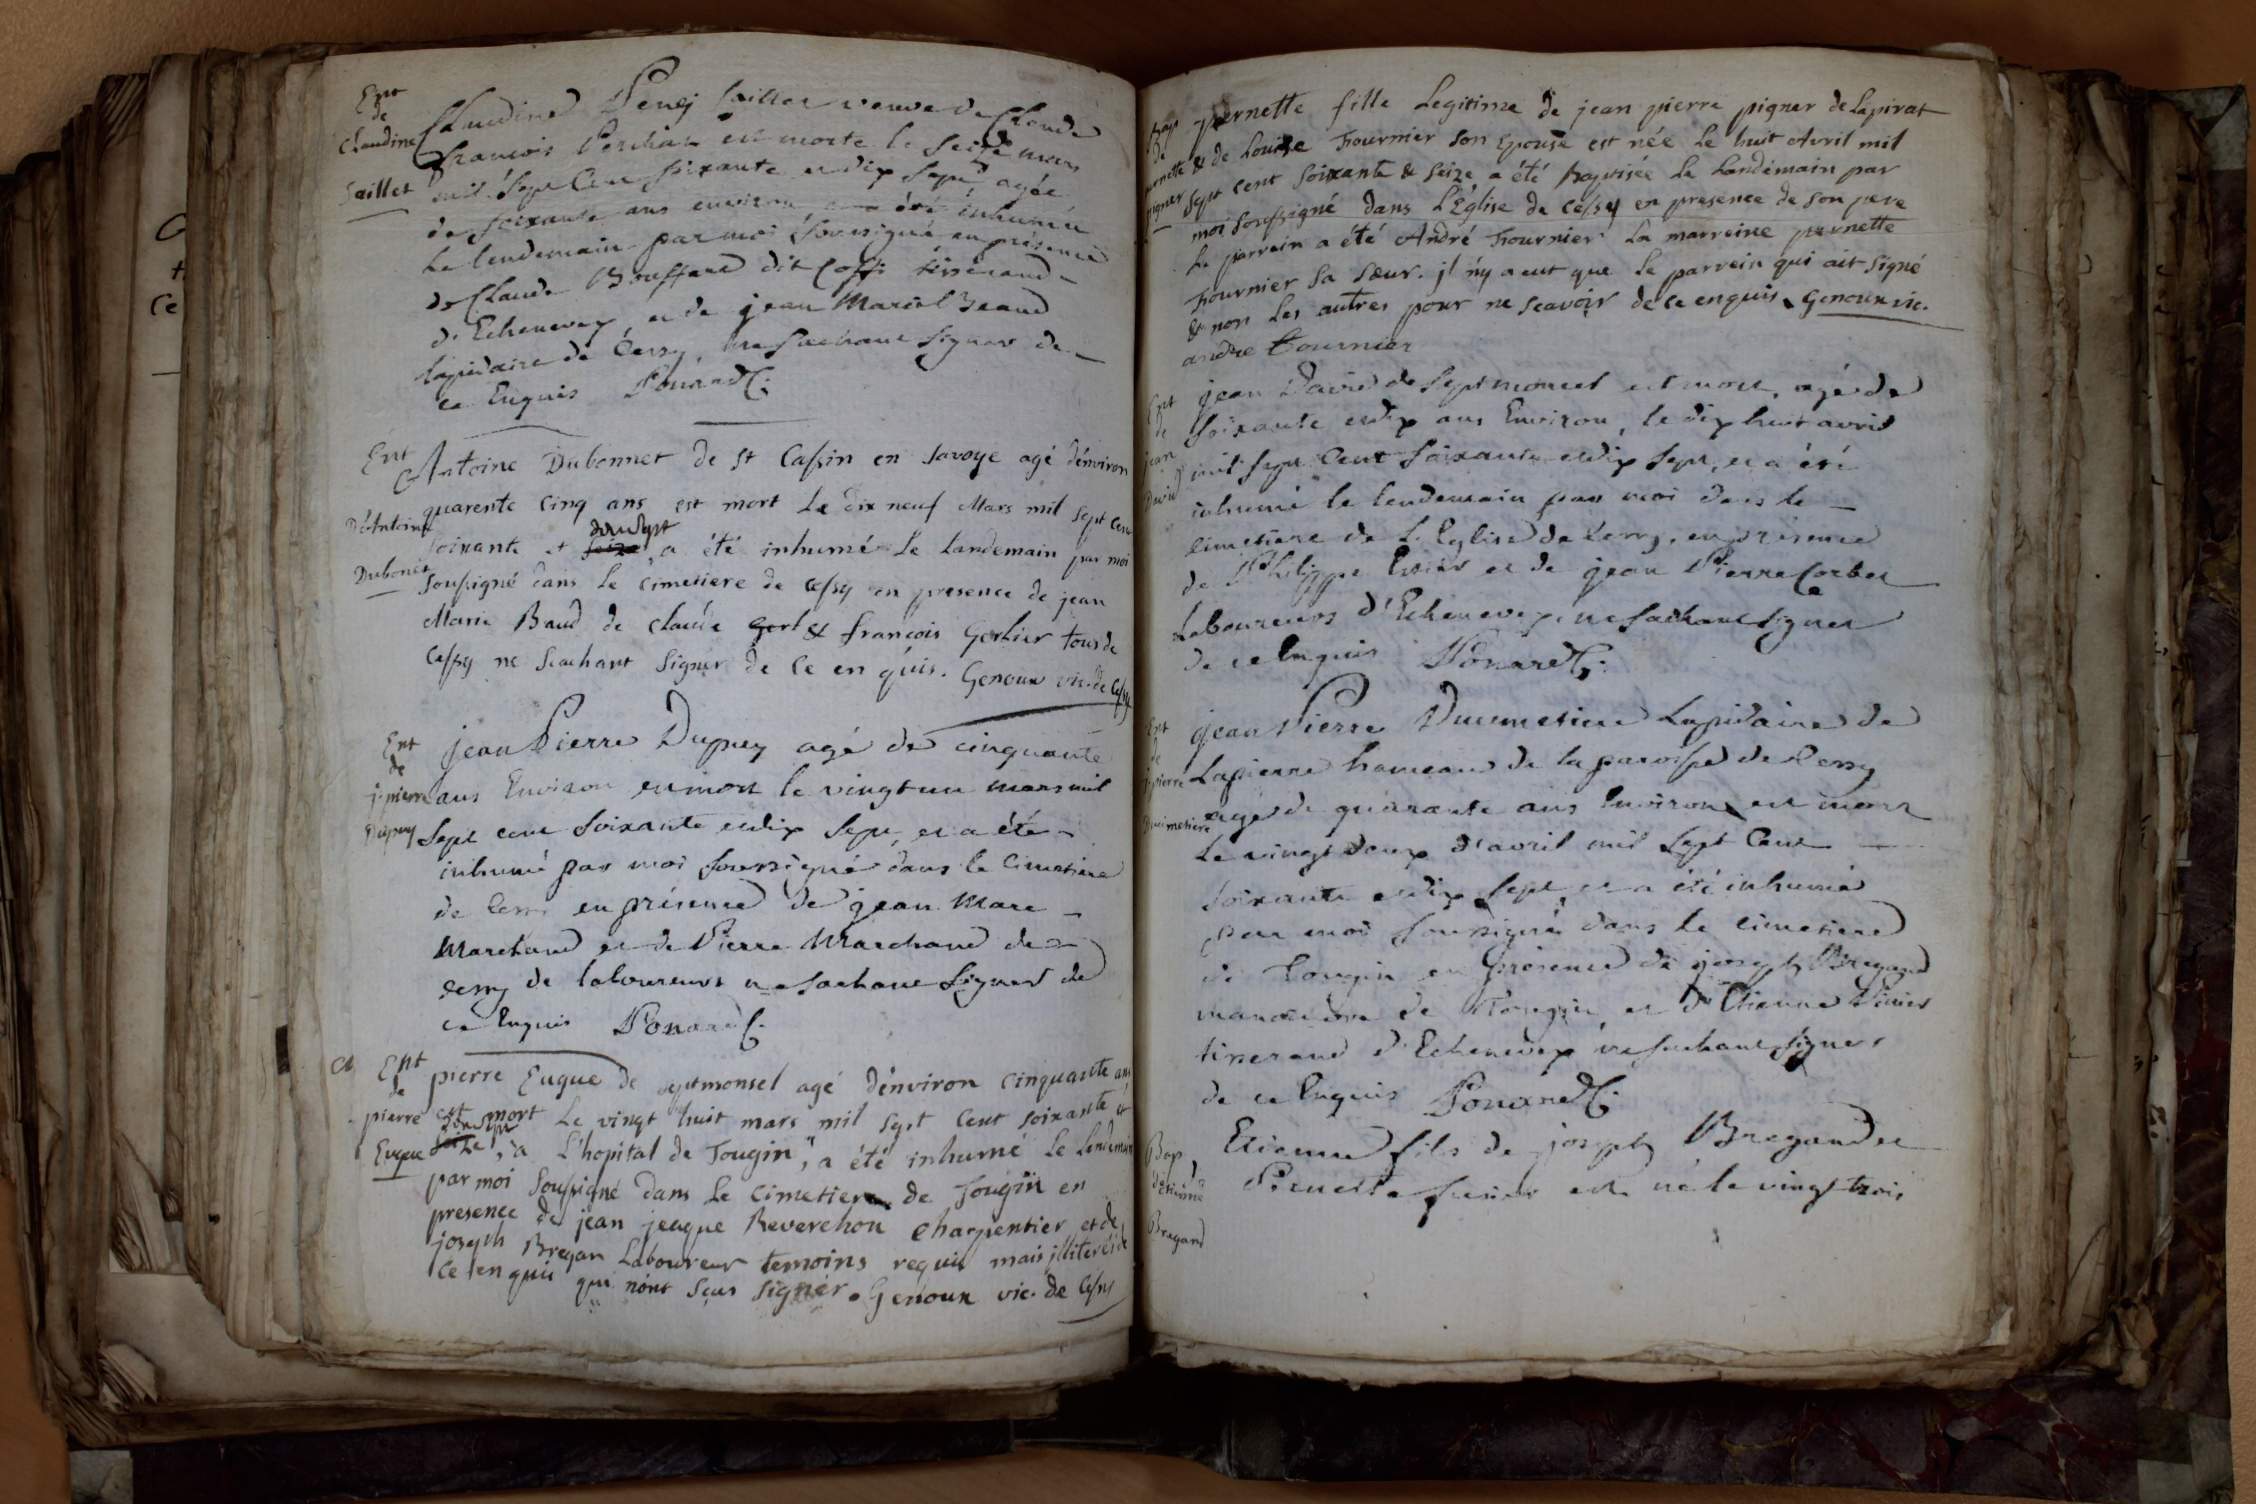 Ent
de
Claudine
Saillet
Claudine Saillet veuve de Claude
françois est morte le seize mars
mil sept Cent soixante et dix sept, agée
de soixante ans environ a été inhumée
le lendemain par moi soussigné en présence
de Claude Bouffard dit tisserand
d'Echenevex, et de jean Marcel
lapidaire de Cessy, ne sachant signer de
ce Enquis Ponard C.
Ent
D'Antoine
Dubonet
Antoine Dubonnet de St Cassin en Savoye agé d'énviron
quarente cinq ans est mort le dix neuf Mars mil sept cent
soixante et seize dix sept, a été inhumé le landemain par moi
soussigné dans le cimetiere de cessy en presence de jean
Marie Baud de claude gerl & françois Gerlier tous de
cessy ne scachant signer de ce en quis. Genoux vic. de Cessy
Ent
de
j. pierre
Dupuy
jean Pierre Dupuy agé de cinquante
ans Environ est mort le vingt un mars mil
sept cent soixante et dix sept, et a été
inhumé par moi soussigné dans le Cimetiere
de Cessy en présence de jean Marc
Marchand et de Pierre Marchand de
cessy de laboureurs ne sachant signer de
ce Enquis Ponard C.
Ent
de
pierre
Euque
pierre Euque de septmonsel agé d'énviron cinquante ans
est mort le vingt huit mars mil sept cent soixante et
seize dix sept, à L'hopital de Tougin, a été inhumé le lendemain
par moi soussigné dans le cimetiere de Tougin en
presence de jean jeaque Reverchon charpentier et de
joseph Bregan Laboureur temoins requis mais de
ce en quis qui n'ont sçus signér. Genoux vic. de Cessy
Bap
de
pernette
pigner
pernette fille Legitime de jean pierre pigner de Lapirat
& de Louise Fournier son Epouse est née le huit Avril mil
sept cent soixante & seize a été Baptisée le Landemain par
moi soussigné dans L'Eglise de Cessy en presence de son pere
Le parrein a été André Fournier La marreine pernette
Fournier sa sœur. jl n'y a eut que le parrein qui ait signé
& non les autres pour ne scavoir de ce enquis. Genoux vic.
andre tournier
Ent
de
jean
David
jean David de septmoncel est mort, agé de
soixante et dix ans Environ, le dix huit avril
mil sept Cent soixante et dix sept, et a été
inhumé le lendemain par moi dans le
Cimetiere de L'Eglise de Cessy, en présence
de Philippe et de jean Pierre Corbet
Laboureurs d'Echenevex, ne sachant signer
de ce Enquis Ponard C.
Ent
de
j. pierre
Ducimetiere
jean Pierre Ducimetiere Lapidaire de
Lapierre hameau de la paroisse de Cessy
agé de quarante ans Environ est mort
le vingt deux d'avril mil sept Cent
soixante et dix sept, et a été inhumé
par moi soussigné dans le Cimetiere
de Tougin en présence de joseph Bregand
de Tougin, et d'Etienne
tisserand d'Echenevex ne sachant signer
de ce Enquis Ponard C.
Bap
d'Etienne
Bregand
Etienne fils de joseph Bregand et
Pernette est né le vingt trois